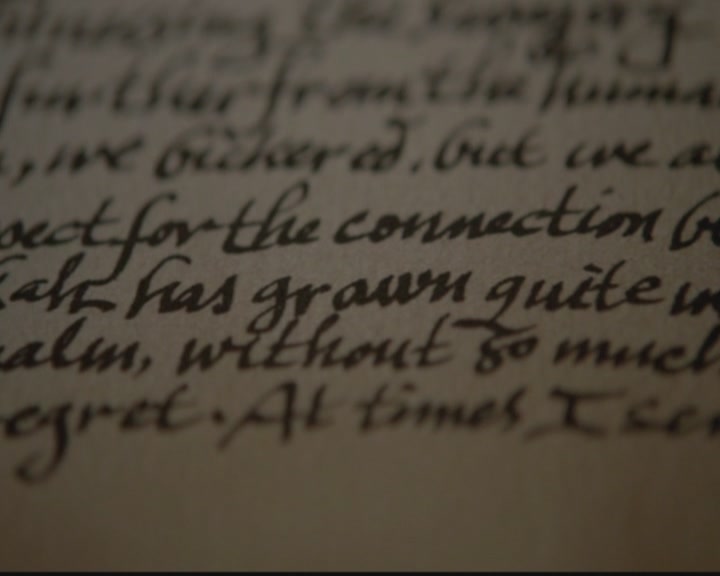 further from the human
, we bickered, but we a
pect for the connection b
kah has grown quite
ealm, without so much
egret. At times I sen